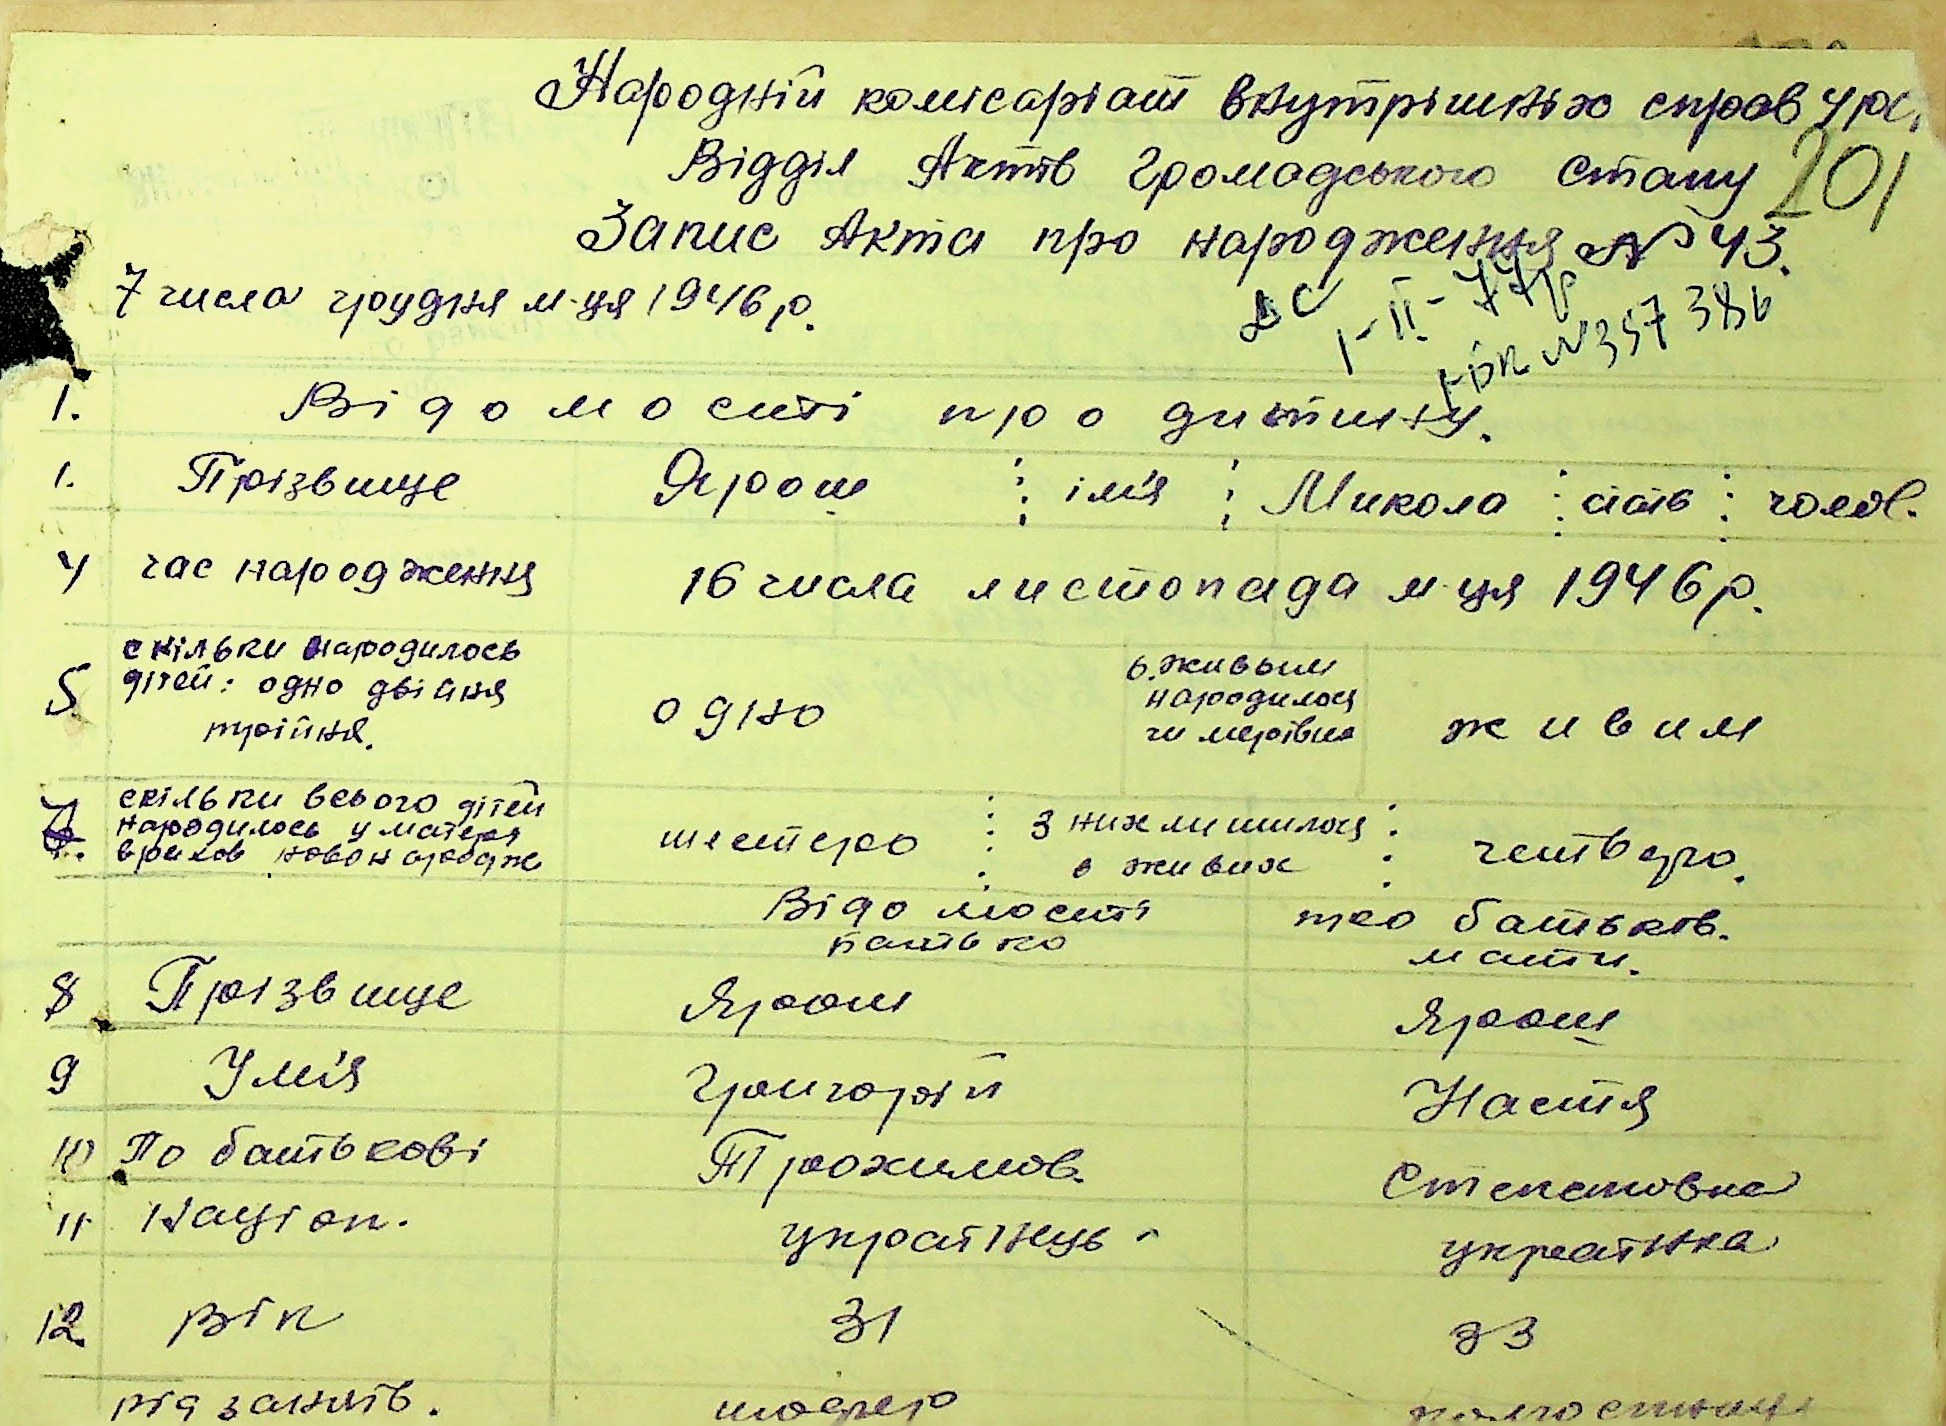 Народній комісаріат внутрішніх справ УРС
201
Відділ Актів Громадського Стану
Запис Акта про народження № 43.
7 числа грудня м-ця 1946 р.
1-II-77р
№357386
1. Відомості про дитину.
1. Прізвище Ярош ім'я Микола стать чолов.
4 час народження 16 числа листопада м-ця 1946 р.
5 скільки народилось
дітей: одно двійня
трійня.
одно
6. живым
народилося
чи мертвим
живим
7. скільки всього дітей
народилось у матеря
врахов. новонародж
шестеро
з них лишилося
в живих
четверо.
Відомості про батьків.
батько мати.
8 Прізвище Ярош Ярош
9 Умія Григорій Настя
10 По батькові Трохимов. Степановна
11 Націон. українець українка
12. Вік 31 33
рід занятів. шофер колгоспниця